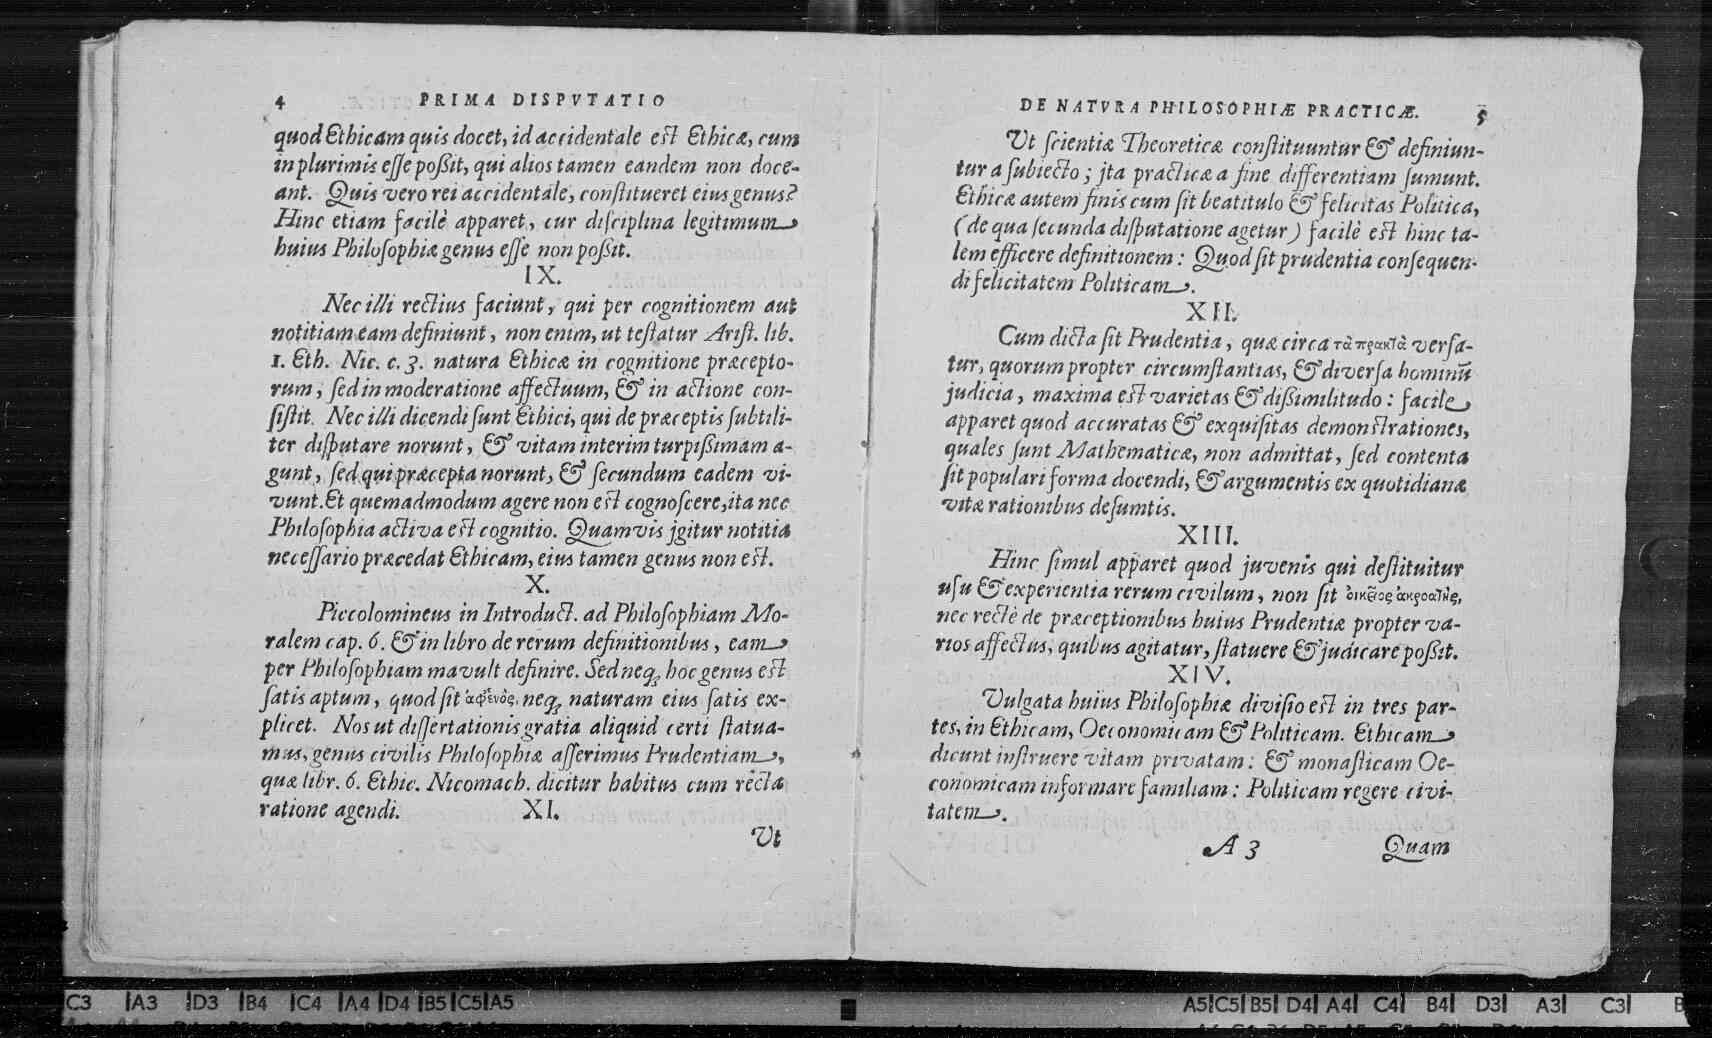 4 PRIMA DISPVTATIO
quod Ethicam quis docet, id accidentale est Ethicæ, cum
in plurimis eſſe poßit, qui alios tamen eandem non doce-
ant. Quis vero rei accidentale, conſtitueret eius genus?
Hinc etiam facilè apparet, cur diſciplina legitimum
huius Philoſophiæ genus eſſe non poßit.
IX.
Nec illi rectius faciunt, qui per cognitionem aut
notitiam eam definiunt, non enim, ut teſtatur Ariſt. lib.
1. Eth. Nic. c. 3. natura Ethicæ in cognitione præcepto-
rum, ſed in moderatione affectuum, & in actione con-
ſiſtit. Nec illi dicendi ſunt Ethici, qui de præceptis ſubtili-
ter diſputare norunt, & vitam interim turpißimam a-
gunt, ſed qui præcepta norunt, & ſecundum eadem vi-
vunt. Et quemadmodum agere non est cognoſcere, ita nec
Philoſophia activa est cognitio. Quamvis jgitur notitia
neceſſario præcedat Ethicam, eius tamen genus non est.
X.
Piccolomineus in Introduct. ad Philoſophiam Mo-
ralem cap. 6. & in libro de rerum definitionibus, eam
per Philoſophiam mavult definire. Sed neq; hoc genus est
ſatis aptum, quod ſit neq; naturam eius ſatis ex-
plicet. Nos ut diſſertationis gratia aliquid certi ſtatua-
mus, genus civilis Philoſophiæ aſſerimus Prudentiam,
quæ libr. 6. Ethic. Nicomach. dicitur habitus cum rectâ
ratione agendi. XI.
Ut
DE NATVRA PHILOSOPHIÆ PRACTICÆ. 5
Ut ſcientiæ Theoreticæ conſtituuntur & definiun-
tur a ſubiecto; jta practicæ a fine differentiam ſumunt.
Ethicæ autem finis cum ſit beatitulo & felicitas Politica,
(de qua ſecunda diſputatione agetur) facilè est hinc ta-
lem efficere definitionem: Quod ſit prudentia conſequen-
di felicitatem Politicam.
XII.
Cum dicta ſit Prudentia, quæ circa τὰ πρακτὰ verſa-
tur, quorum propter circumſtantias, & diverſa hominū
judicia, maxima est varietas & dißimilitudo: facile
apparet quod accuratas & exquiſitas demonstrationes,
quales ſunt Mathematicæ, non admittat, ſed contenta
ſit populari forma docendi, & argumentis ex quotidianæ
vitæ rationibus deſumtis.
XIII.
Hinc ſimul apparet quod juvenis qui deſtituitur
uſu & experientia rerum civilum, non ſit οἰκεῖος ἀκροατὴς,
nec rectè de præceptionibus huius Prudentiæ propter va-
rios affectus, quibus agitatur, ſtatuere & judicare poßit.
XIV.
Vulgata huius Philoſophiæ diviſio est in tres par-
tes, in Ethicam, Oeconomicam & Politicam. Ethicam
dicunt inſtruere vitam privatam: & monaſticam Oe-
conomicam informare familiam: Politicam regere civi-
tatem.
A 3 Quam
C3 A3 D3 B4 C4 A4 D4 B5 C5 A5
A5 C5 B5 D4 A4 C4 B4 D3 A3 C3